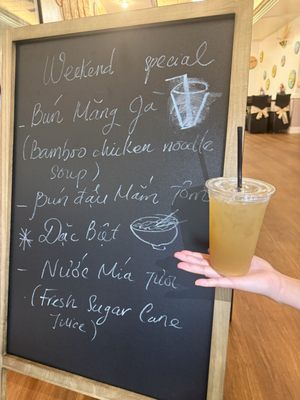 Weekend special
- Bún Măng Gà
(Bamboo chicken noodle
soup)
- Bún đậu Mắm Tôm
* Đặc Biệt
- Nước Mía Tươi
(Fresh Sugar Cane
Juice)